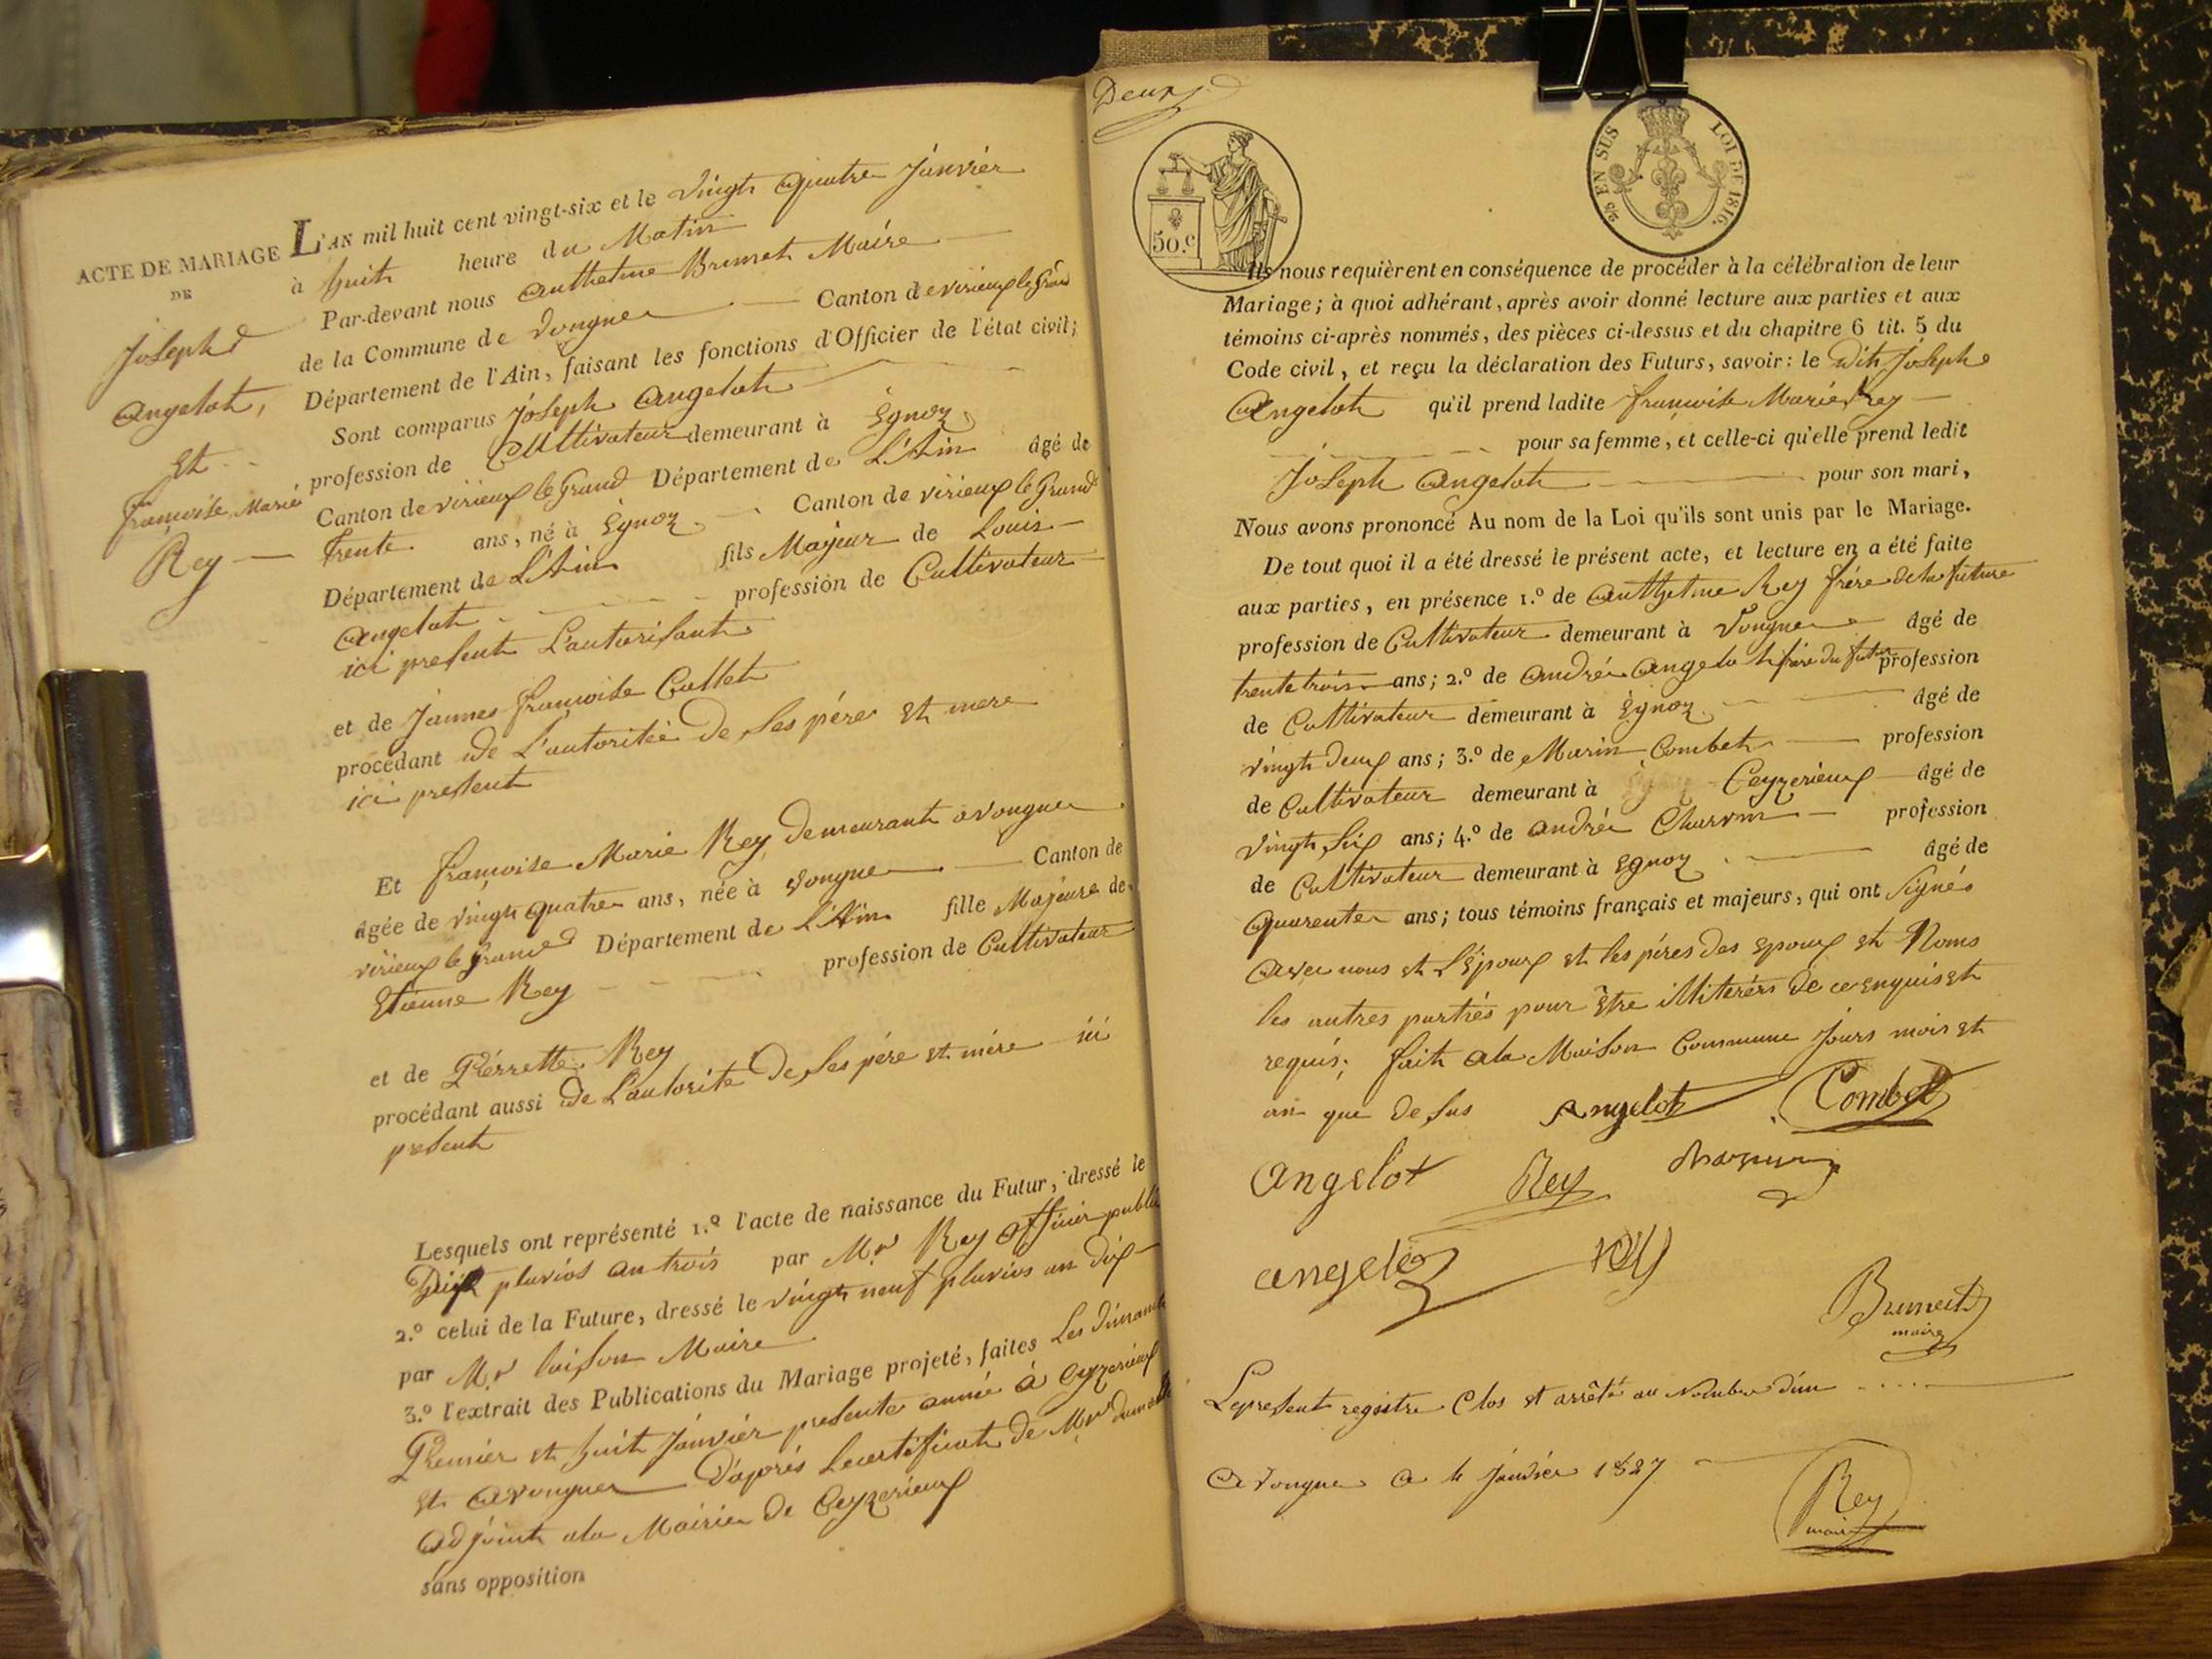 ACTE DE MARIAGE
DE
Joseph
Angelot,
Et
françoise Marie
Rey
L'AN mil huit cent vingt-six et le vingt quatre Janvier
à huit heure du Matin
Par-devant nous Anthelme Brunet Maire
de la Commune de Vongne Canton de virieux le Grand
Département de l'Ain, faisant les fonctions d'Officier de l'état civil;
Sont comparus Joseph Angelot
profession de Cultivateur demeurant à Egnoz
Canton de virieux le Grand Département de L'Ain âgé de
trente ans, né à Egnoz Canton de virieux le Grand
Département de L'Ain fils Majeur de Louis
Angelot profession de Cultivateur
ici present L'autorisant
et de Jeanne françoise Collet
procédant de L'autorité De ses pére Et mere
ici present
Et françoise Marie Rey demeurant a vongne
âgée de vingt quatre ans, née à vongne Canton de
virieux le Grand Département de L'Ain fille Majeure de
Etienne Rey profession de Cultivateur
et de Piérrette Rey
procédant aussi de L'autorité De ses pére et mère ici
présent
Lesquels ont représenté 1.º l'acte de naissance du Futur, dressé le
pluvios an trois par Mr Rey officier public
2.º celui de la Future, dressé le vingt neuf pluvios an dix
par Mr Maire
3.º l'extrait des Publications du Mariage projeté, faites Les dimanche
Premier et huit Janvier presente année à Ceyzerieux
Et a vongne D'aprés Le certificat de Mr
adjoint ala Mairie de Ceyzerieux
sans opposition
Deux
50.c
25 EN SUS LOI DE 1816.
Ils nous requièrent en conséquence de procéder à la célébration de leur
Mariage; à quoi adhérant, après avoir donné lecture aux parties et aux
témoins ci-après nommés, des pièces ci-dessus et du chapitre 6 tit. 5 du
Code civil, et reçu la déclaration des Futurs, savoir: le dit Joseph
Angelot qu'il prend ladite françoise Marie Rey
pour sa femme, et celle-ci qu'elle prend ledit
Joseph Angelot pour son mari,
Nous avons prononcé Au nom de la Loi qu'ils sont unis par le Mariage.
De tout quoi il a été dressé le présent acte, et lecture en a été faite
aux parties, en présence 1.º de Anthelme Rey frère de la future
profession de Cultivateur demeurant à Vongne âgé de
trente trois ans; 2.º de André Angelot frère du futur profession
de Cultivateur demeurant à Egnoz âgé de
vingt deux ans; 3.º de Marin Combet profession
de Cultivateur demeurant à Ceyzerieux âgé de
vingt six ans; 4.º de André Charvin profession
de Cultivateur demeurant à Egnoz âgé de
quarente ans; tous témoins français et majeurs, qui ont signés
avec nous et L'époux et les péres des epoux et Nons
les autres partiés pour être illiterérs de ce enquis et
requis; fait ala Maison Commune jours mois et
an que de sus Angelot Combet
angelot Rey Charvin
angelot rey
Brunet
maire
Le present registre Clos et arrêté au Nombre d'un
A vongne a 4 janvier 1827
Rey
maire